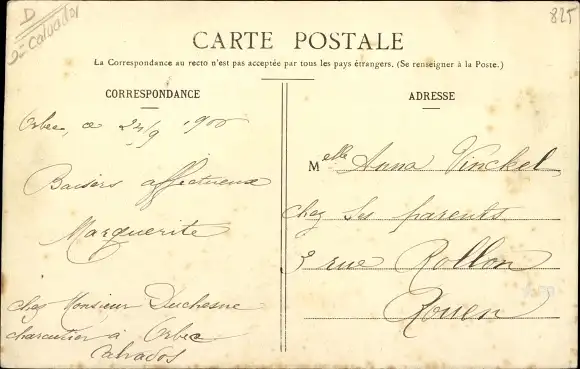 D
Calvados
825
CARTE POSTALE
La Correspondance au recto n'est pas acceptée par tous les pays étrangers. (Se renseigner à la Poste.)
CORRESPONDANCE
Orbec, ce 24/9 1900
Baisers affectueux
Marguerite
chez Monsieur Duchesne
charcutier à Orbec
Calvados
ADRESSE
Melle Anna Vinckel
chez ses parents
3 rue Rollon
Rouen